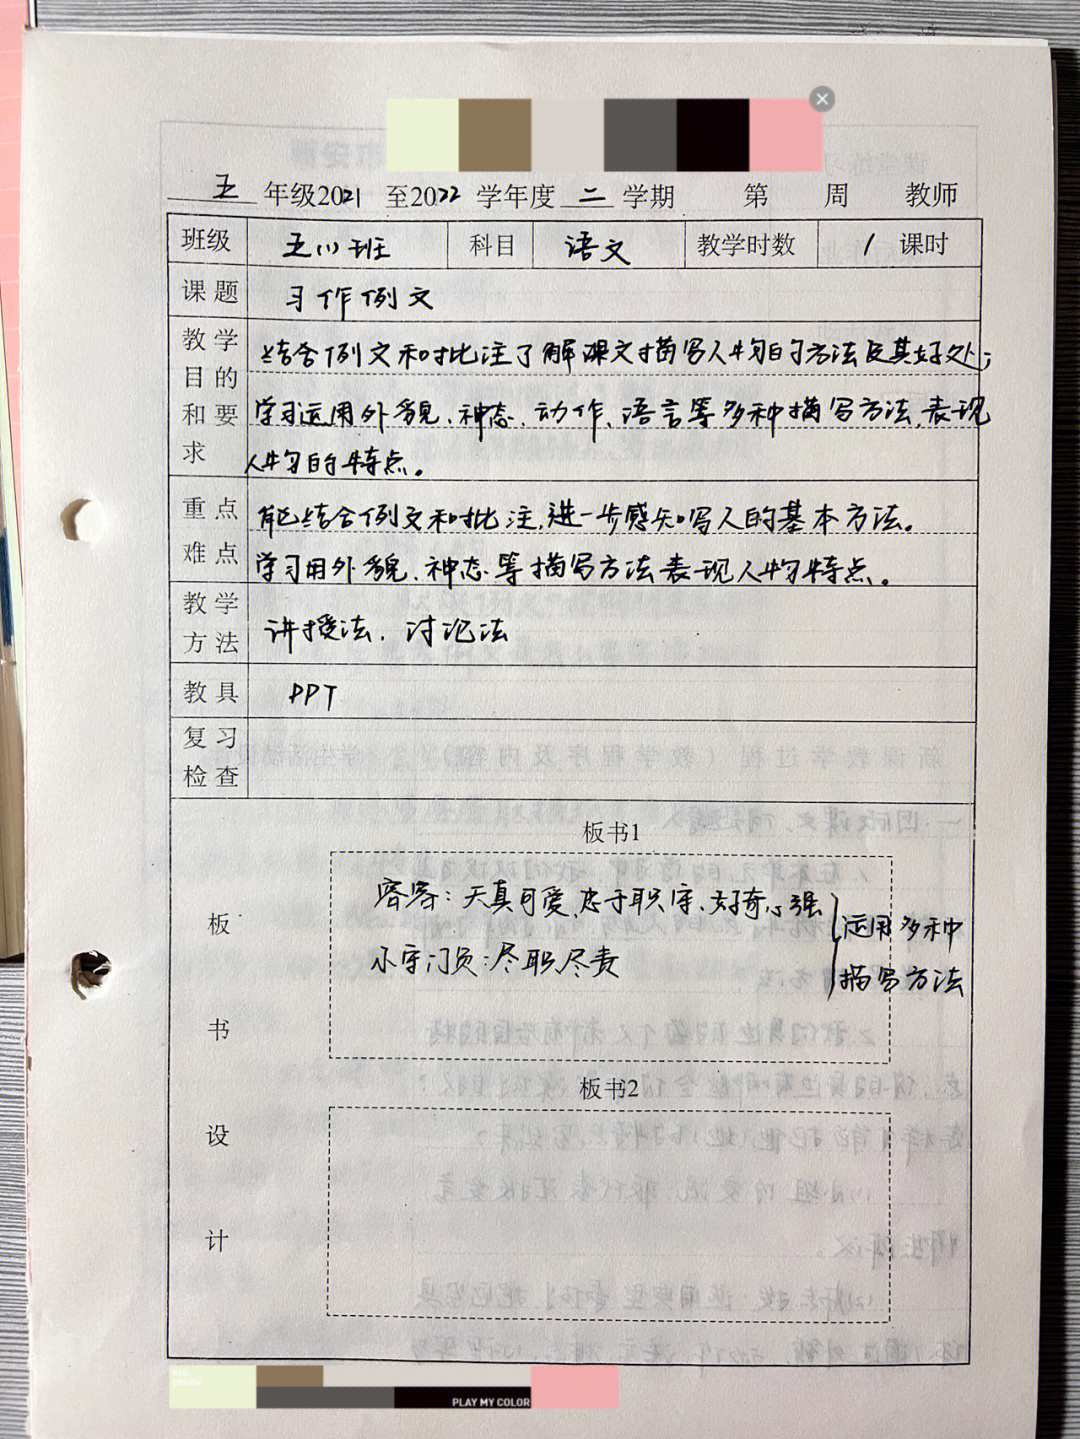 五 年级2021 至2022 学年度 二 学期 第 周 教师
班级 五(1)班 科目 语文 教学时数 1 课时
课题 习作例文
教学目的和要求
结合例文和批注了解课文描写人物的方法及其好处;
学习运用外貌、神态、动作、语言等多种描写方法,表现
人物的特点。
重点
能结合例文和批注,进一步感知写人的基本方法。
难点
学习用外貌、神态等描写方法表现人物特点。
教学方法
讲授法、讨论法
教具 PPT
复习检查
板书设计
板书1
容容:天真可爱,忠于职守、好奇心强
小守门员:尽职尽责
运用多种
描写方法
板书2
PLAY MY COLOR